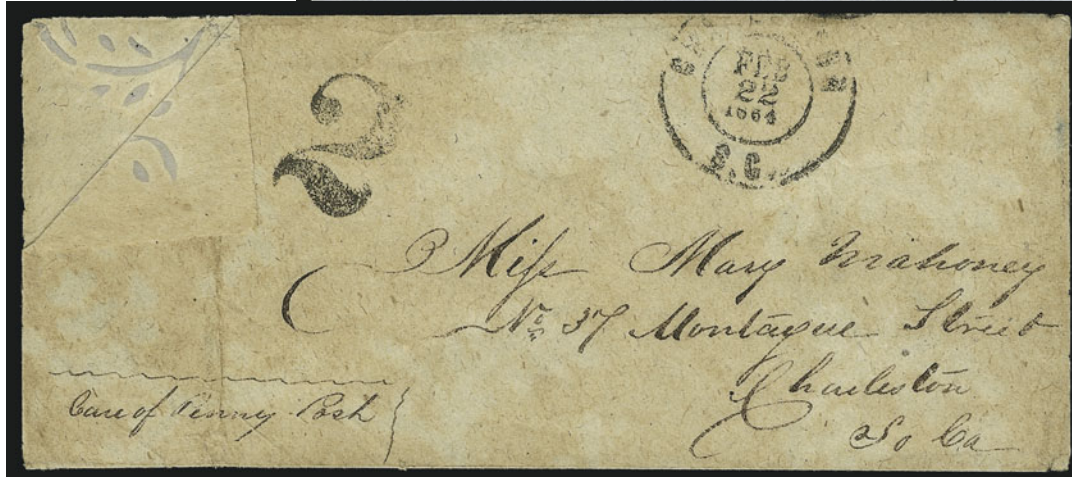 2
FEB
22
1864
S.C.
Miss Mary Mahoney
No. 37 Montague Street
Charleston
So Ca
Care of Penny Post